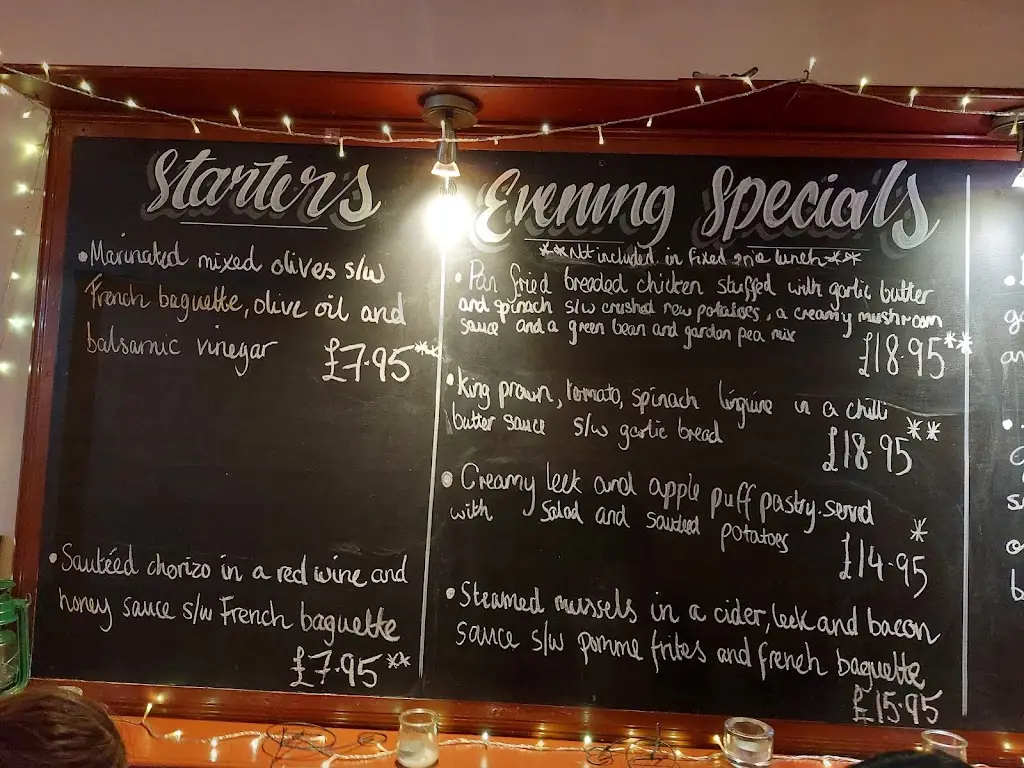 Starters
• Marinated mixed olives s/w
French baguette, olive oil and
balsamic vinegar £7.95**
• Sautéed chorizo in a red wine and
honey sauce s/w French baguette
£7.95**
Evening Specials
**Not included in fixed price lunch**
• Pan fried breaded chicken stuffed with garlic butter
and spinach s/w crushed new potatoes, a creamy mushroom
sauce and a green bean and garden pea mix
£18.95**
• King prawn, tomato, spinach linguine in a chilli
butter sauce s/w garlic bread
£18.95**
• Creamy leek and apple puff pastry served
with salad and sautéed potatoes
£14.95*
• Steamed mussels in a cider, leek and bacon
sauce s/w pomme frites and french baguette
£15.95